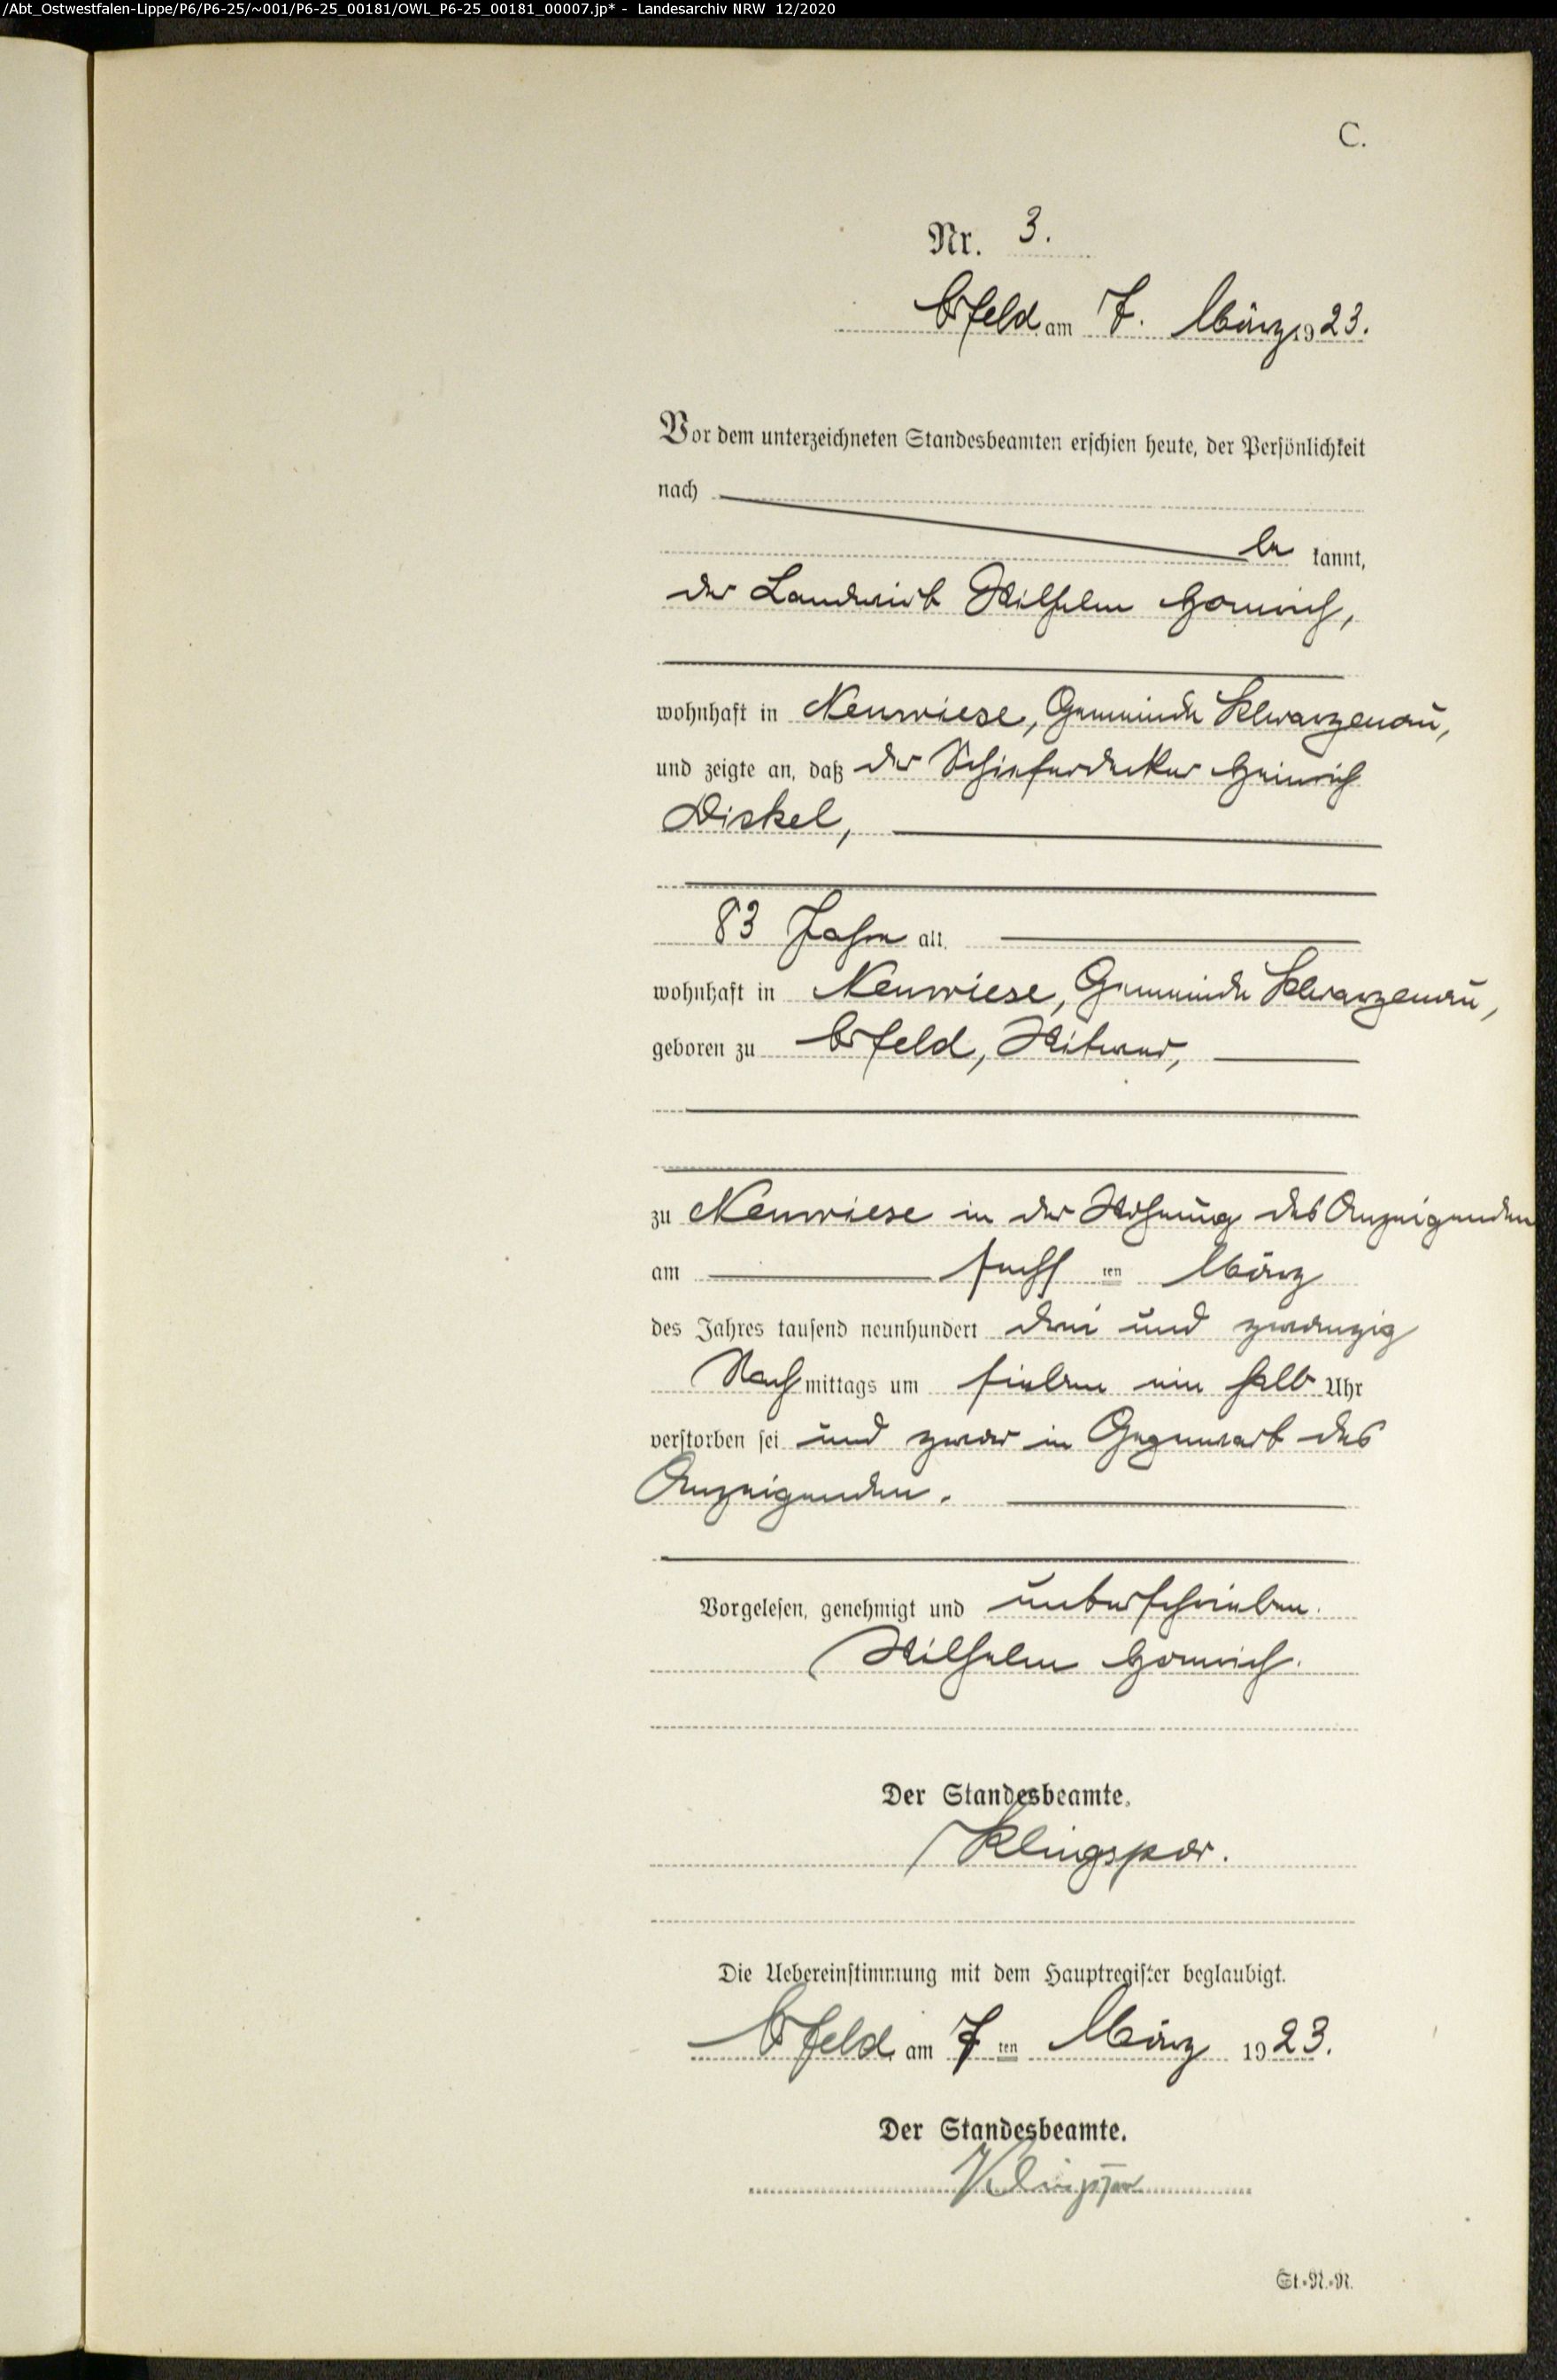 /Abt_Ostwestfalen-Lippe/P6/P6-25/~001/P6-25_00181/OWL_P6-25_00181_00007.jp* - Landesarchiv NRW 12/2020
C.
Nr. 3.
am 7. März 1923.
Vor dem unterzeichneten Standesbeamten erschien heute, der Persönlichkeit
nach
be kannt,
der Landwirt Wilhelm
wohnhaft in Neuwiese, Gemeinde Schwarzenau,
und zeigte an, daß der Schieferdecker Heinrich
Dickel,
83 Jahre alt,
wohnhaft in Neuwiese, Gemeinde Schwarzenau,
geboren zu Witwer,
zu Neuwiese in der Wohnung des Anzeigenden
am sechs ten März
des Jahres tausend neunhundert drei und zwanzig
Nachmittags um sieben ein halb Uhr
verstorben sei und zwar in Gegenwart des
Anzeigenden.
Vorgelesen, genehmigt und unterschrieben.
Wilhelm
Der Standesbeamte.
Klingspor.
Die Uebereinstimmung mit dem Hauptregister beglaubigt.
am 7 ten März 1923.
Der Standesbeamte.
Klingspor
St.-N.-N.